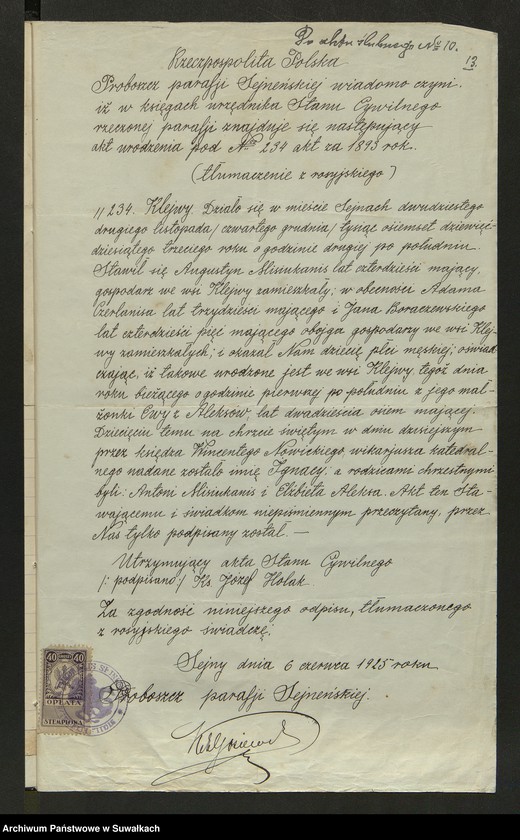 Do aktu ślubnego № 10.
13
Rzeczpospolita Polska
Proboszcz parafji Sejneńskiej wiadomo czyni,
iż w księgach urzędnika Stanu Cywilnego
rzeczonej parafji znajduje się następujący
akt urodzenia pod № 234 akt za 1893 rok.
(tłumaczenie z rosyjskiego)
"234. Klejwy. Działo się w mieście Sejnach dwudziestego
drugiego listopada /czwartego grudnia/ tysiąc osiemset dziewięć-
dziesiątego trzeciego roku o godzinie drugiej po południu.
Stawił się Augustyn Misiukanis lat czterdzieści mający,
gospodarz we wsi Klejwy zamieszkały; w obecności Adama
Czerlanisa lat trzydzieści mającego i Jana Boraczewskiego
lat czterdzieści pięć mającego obojga gospodarzy we wsi Klej-
wy zamieszkałych; i okazał Nam dziecię płci męskiej, oświad-
czając, iż takowe urodzone jest we wsi Klejwy tegoż dnia
roku bieżącego o godzinie pierwszej po południu z jego mał-
żonki Ewy z Aleksów, lat dwadzieścia osiem mającej.
Dziecięciu temu na chrzcie świętym w dniu dzisiejszym
przez księdza Wincentego Nowickiego, wikarjusza katedral-
nego nadane zostało imię Ignacy; a rodzicami chrzestnymi
byli: Antoni Misiukanis i Elżbieta Aleksa. Akt ten Sta-
wającemu i świadkom niepiśmiennym przeczytany, przez
Nas tylko podpisany został. —
Utrzymujący akta Stanu Cywilnego
/: podpisano :/ Ks. Józef Holak
Za zgodność niniejszego odpisu, tłumaczonego
z rosyjskiego świadczę.
Sejny dnia 6 czerwca 1925 roku
Proboszcz parafji Sejneńskiej.
40 40
OPŁATA
STEMPLOWA
Archiwum Państwowe w Suwałkach